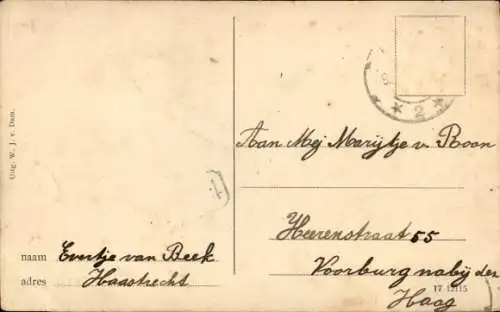 Uitg. W. J. v. Dam.
* 2 *
Aan Mej Marijtje v. Roon
Heerenstraat 55
Voorburg nabij den
Haag
naam Evertje van Beek
adres Haastrecht